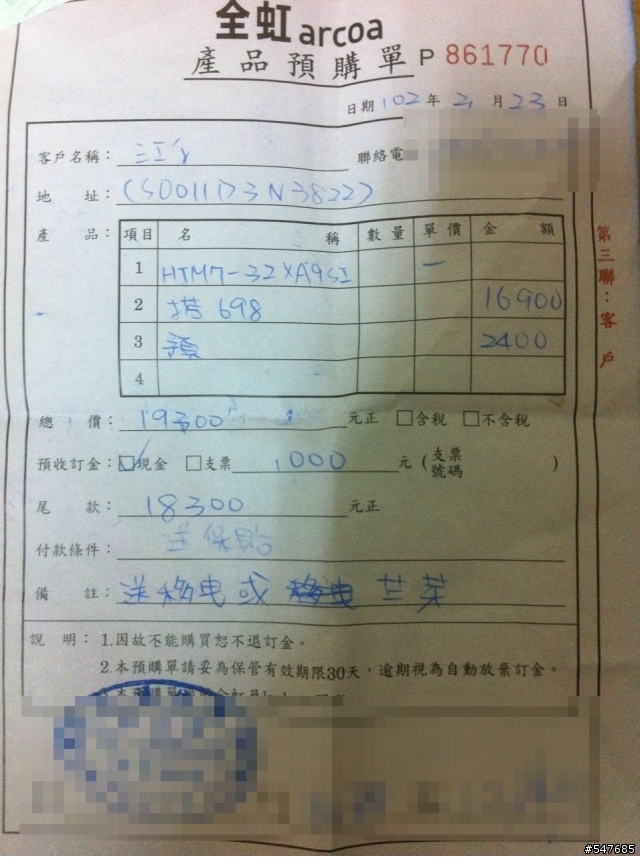 全虹 arcoa
產品預購單 P 861770
日期 102 年 2 月 23 日
客戶名稱： 江 聯絡電
地 址：(S001117 3N3822)
產 品： 項目 名 稱 數量 單價 金 額
1 HTM7-32XA9SI
2 搭 698 16900
3 預 2400
4
第三聯：客戶
總 價： 19300 元正 □含稅 □不含稅
預收訂金：☑現金 □支票 1000 元 (支票號碼 )
尾 款： 18300 元正
付款條件： 送保貼
備 註： 送移电或
說 明：1.因故不能購買恕不退訂金。
2.本預購單請妥為保管有效期限30天，逾期視為自動放棄訂金。
#547685